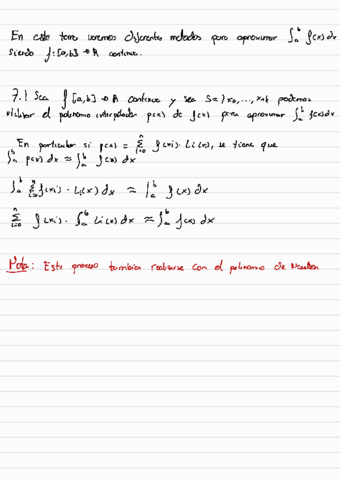 En este tema veremos diferentes metodos para aproximar ∫_a^b f(x) dx
siendo f: [a,b] → R continua.
7.1 Sea f [a,b] → R continua y sea S = {x_0, ..., x_n} podemos
utilizar el polinomio interpolador p(x) de f(x) para aproximar ∫_a^b f(x) dx
En particular si p(x) = Σ_{i=0}^n f(x_i) · L_i(x), se tiene que
∫_a^b p(x) dx ≈ ∫_a^b f(x) dx
∫_a^b Σ_{i=0}^n f(x_i) · L_i(x) dx ≈ ∫_a^b f(x) dx
Σ_{i=0}^n f(x_i) · ∫_a^b L_i(x) dx ≈ ∫_a^b f(x) dx
Nota: Este proceso tambien realizarse con el polinomio de Newton